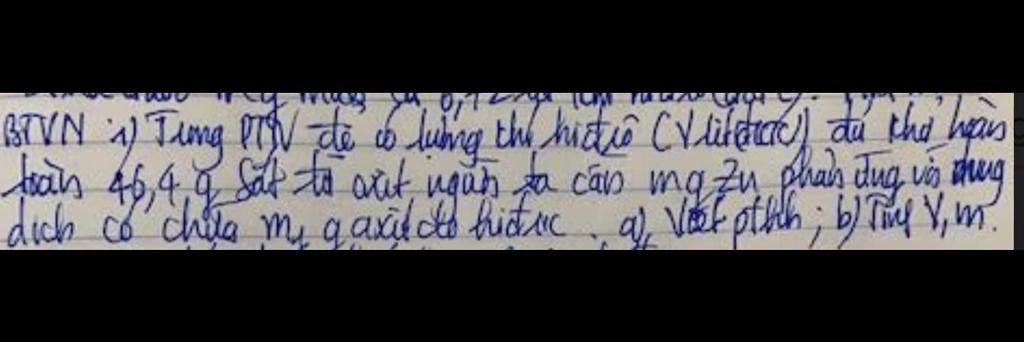 BTVN 1) Trong PTN để có lượng khí hiđrô (V lít đktc) đủ khử hoàn
toàn 46,4 g Sắt từ oxit người ta cần m g Zn phản ứng với dung
dịch có chứa m₁ g axit clo hiđric. a) Viết pthh; b) Tính V, m.